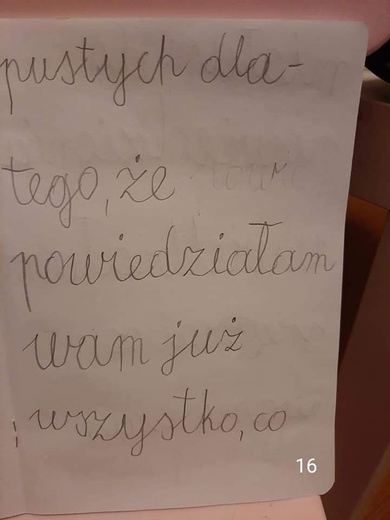 pustych dla-
tego, że
powiedziałam
wam już
wszystko, co
16